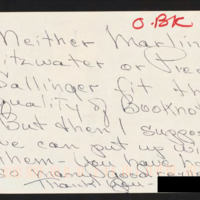 O.BK
Neither Marlin
itzwater or Pre
Sallinger fit th
quality of Bookno
But then I suppo
we can put up wi
them - you have ha
so many good
Thank you -